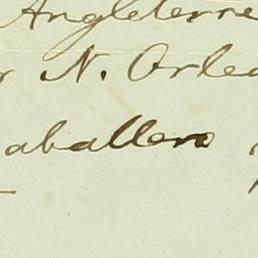 Angleterre
r N. Orlea
aballero